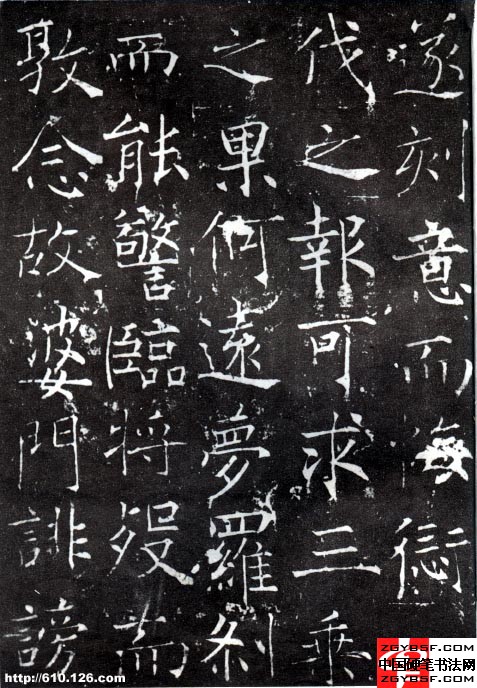 遂刻意而愆
伐之報可求三乘
之果何遠夢羅刹
而能警臨將歿
敦念故婆門誹謗
http://610.126.com
ZGYBSF.COM
中国硬笔书法网
ZGYBSF.COM